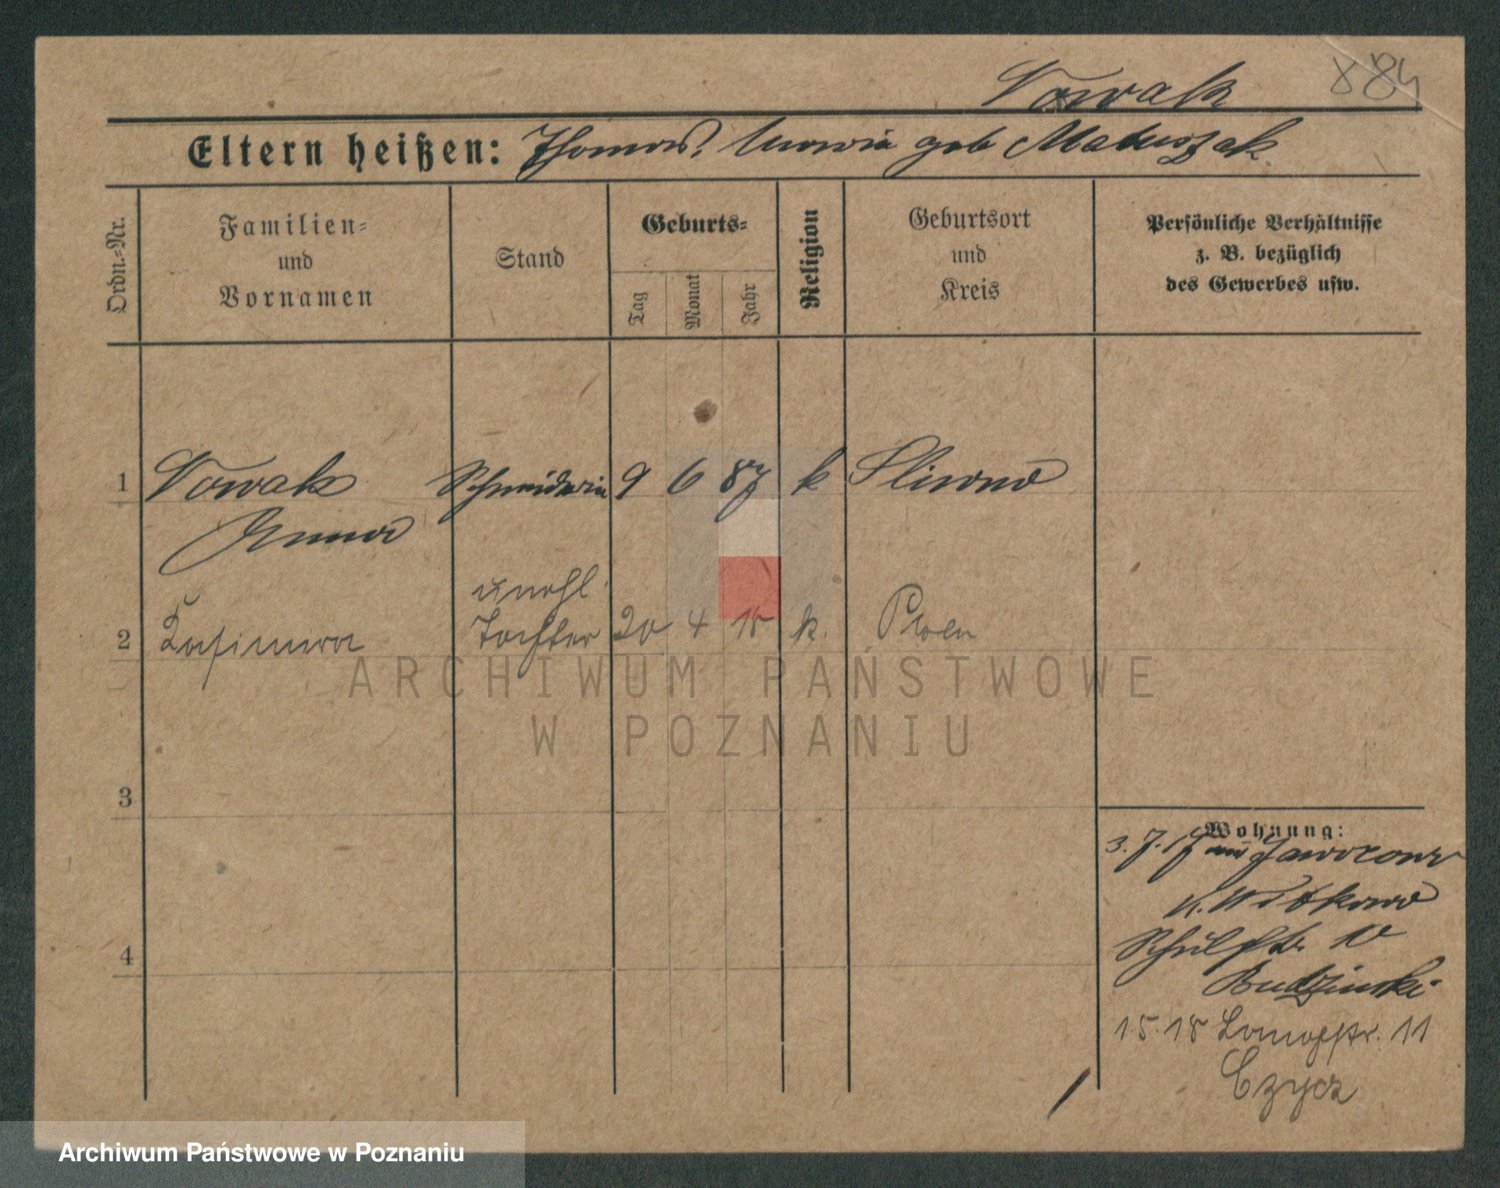 Nowak
884
Eltern heißen: Thomas, Maria geb Matuszak
Ordn.=Nr.
Familien=
und
Vornamen
Stand
Geburts=
Tag
Monat
Jahr
Religion
Geburtsort
und
Kreis
Persönliche Verhältnisse
z. B. bezüglich
des Gewerbes usw.
1 Nowak Schneiderin 9 6 87 k Sliwno
Anna
unehl.
2 Kasimira Tochter 20 4 18 k. Posen
ARCHIWUM PAŃSTWOWE
W POZNANIU
3
4
Wohnung:
3. 7. 17 aus
K. Witkowo
Schulstr. 10
Budzinski
1.5.18 Langestr. 11
Czycz
Archiwum Państwowe w Poznaniu